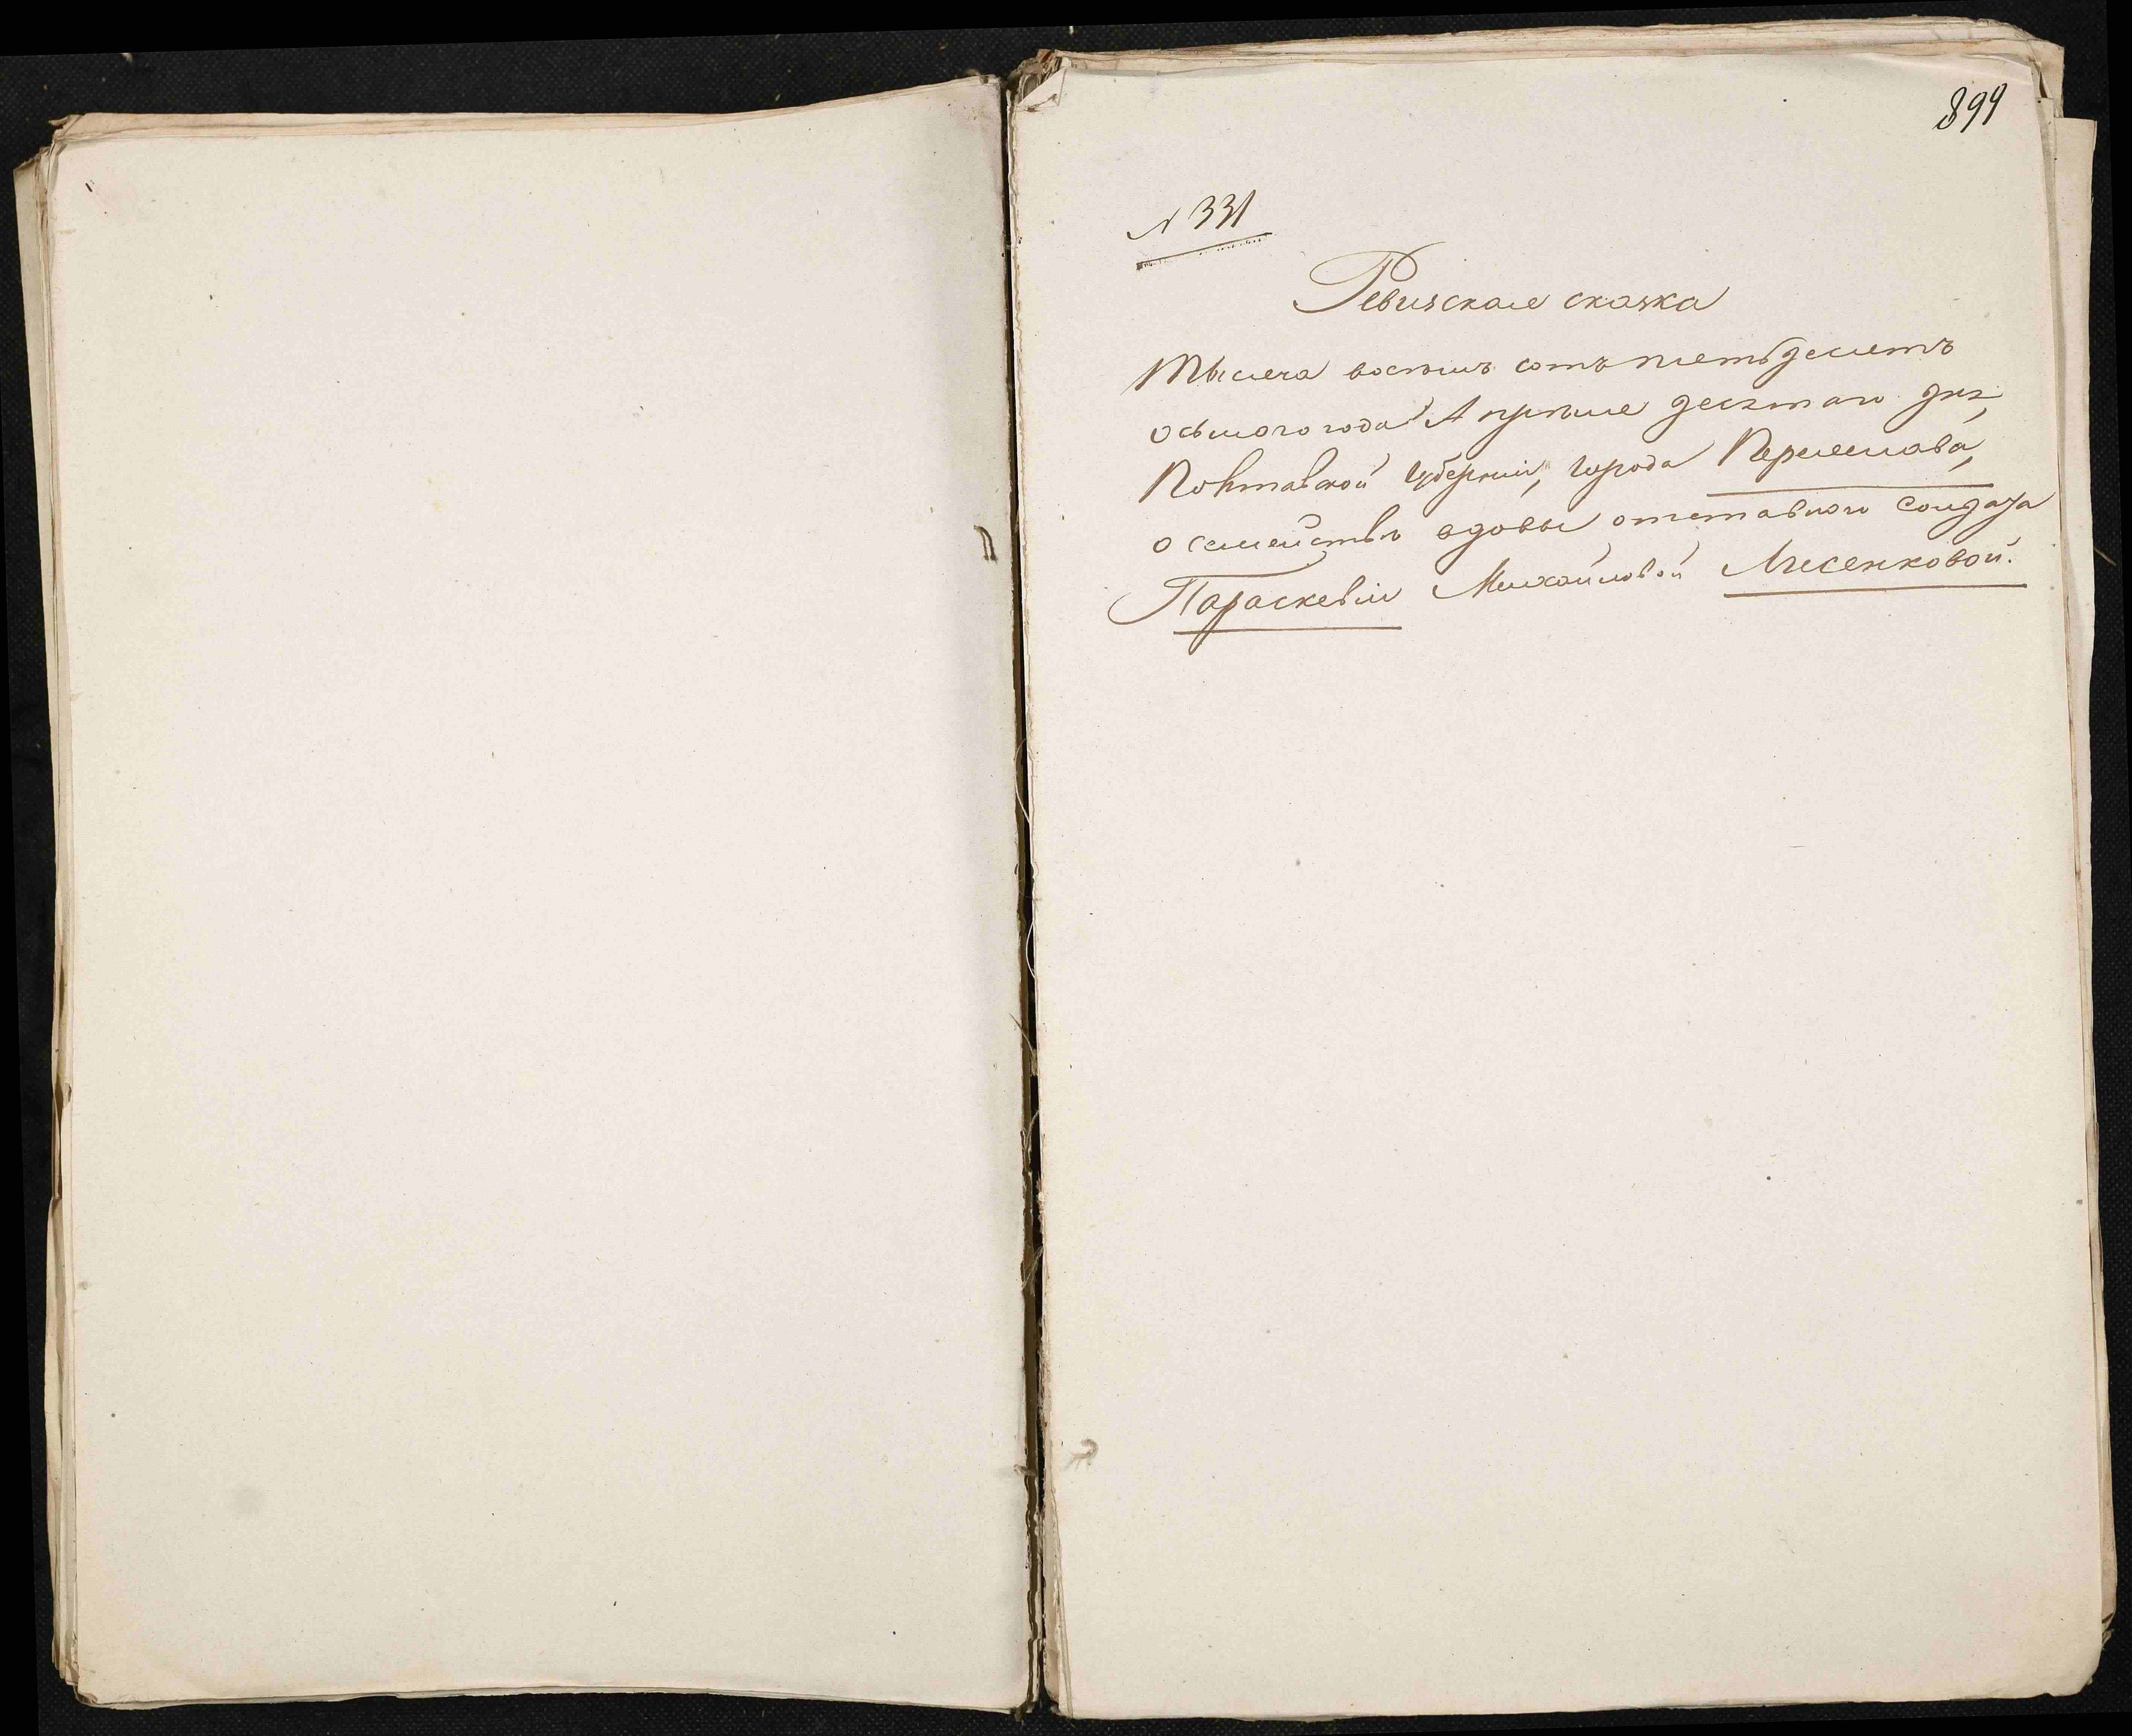 899
№ 331
Ревизская сказка
Тысяча восемь сотъ пятьдесятъ
осьмого года Апреля десятаго дня,
Полтавской Губерніи, города Переяслава,
о семействѣ вдовы отставного солдата
Параскевіи Михайловой